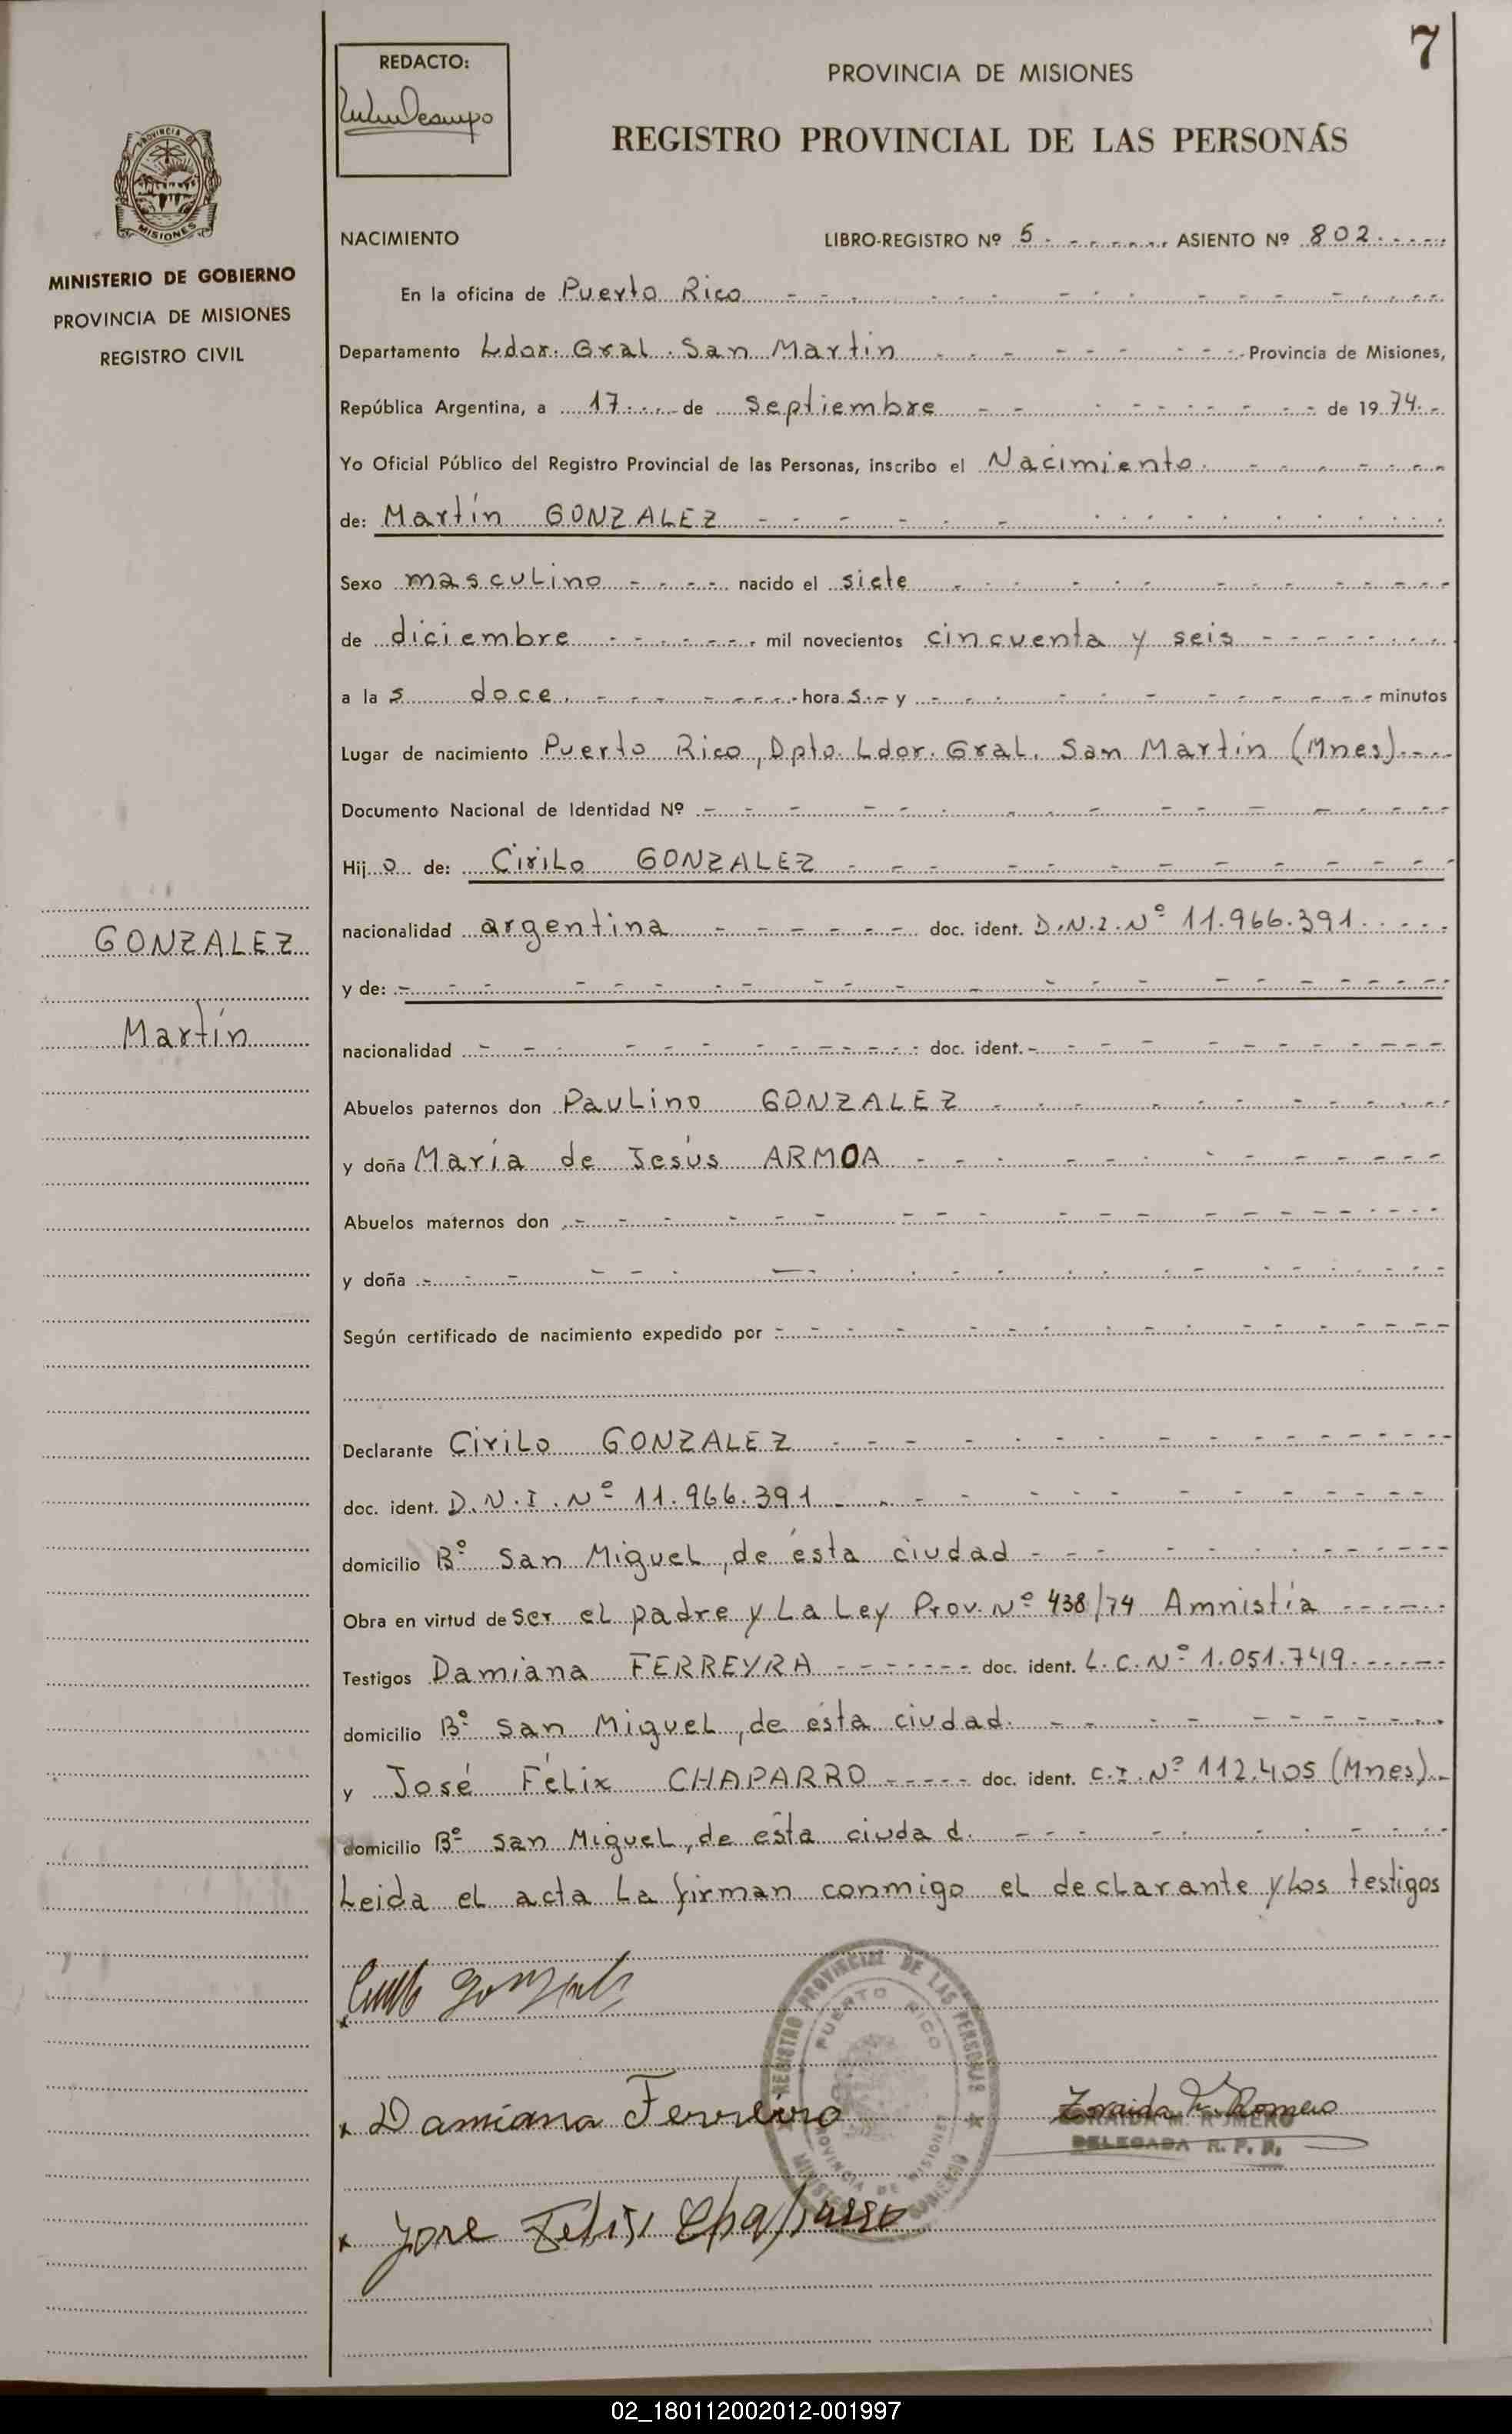 7
REDACTO:
PROVINCIA DE MISIONES
REGISTRO PROVINCIAL DE LAS PERSONAS
PROVINCIA
MISIONES
MINISTERIO DE GOBIERNO
PROVINCIA DE MISIONES
REGISTRO CIVIL
NACIMIENTO LIBRO-REGISTRO Nº 5 ASIENTO Nº 802
En la oficina de Puerto Rico
Departamento Ldor. Gral. San Martin Provincia de Misiones,
República Argentina, a 17 de Septiembre de 1974
Yo Oficial Público del Registro Provincial de las Personas, inscribo el Nacimiento
de: Martín GONZALEZ
Sexo masculino nacido el siete
de diciembre mil novecientos cincuenta y seis
a las doce horas y minutos
Lugar de nacimiento Puerto Rico, Dpto. Ldor. Gral. San Martín (Mnes)
Documento Nacional de Identidad Nº
Hijo de: Cirilo GONZALEZ
GONZALEZ
nacionalidad argentina doc. ident. D.N.I. Nº 11.966.391
y de:
Martín
nacionalidad doc. ident.
Abuelos paternos don Paulino GONZALEZ
y doña María de Jesús ARMOA
Abuelos maternos don
y doña
Según certificado de nacimiento expedido por
Declarante Cirilo GONZALEZ
doc. ident. D.N.I. Nº 11.966.391
domicilio Bº San Miguel, de ésta ciudad
Obra en virtud de ser el padre y La Ley Prov. Nº 438/74 Amnistía
Testigos Damiana FERREYRA doc. ident. L.C. Nº 1.051.749
domicilio Bº San Miguel, de ésta ciudad.
y José Félix CHAPARRO doc. ident. C.I. Nº 112.405 (Mnes)
domicilio Bº San Miguel, de ésta ciudad.
Leida el acta La firman conmigo el declarante y los testigos
REGISTRO PROVINCIAL DE LAS PERSONAS
PUERTO RICO
PROVINCIA DE MISIONES
x Damiana Ferreira
Zoraida Romero
ZORAIDA M. ROMERO
DELEGADA R. P. P.
x Jose Felix Chaparro
02_180112002012-001997